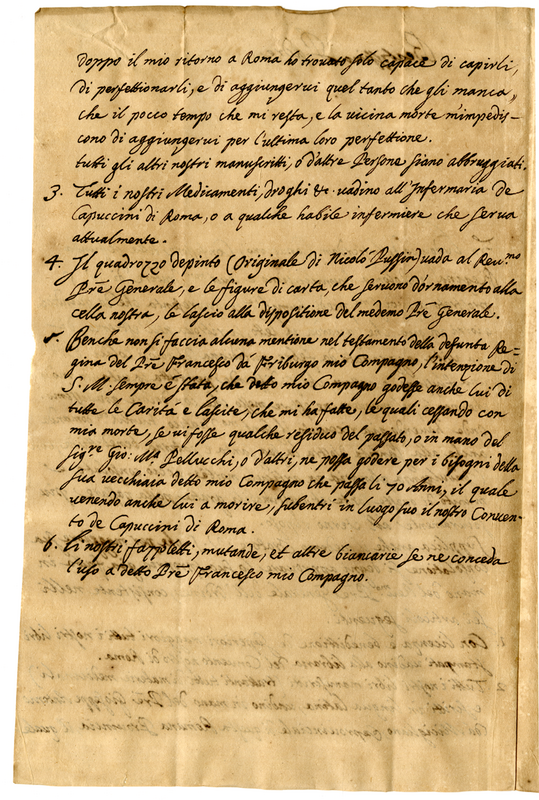 doppo il mio ritorno a Roma ho trovato solo capace di capirli,
di perfettionarli, e di aggiungervi quel tanto che gli manca,
che il pocco tempo che mi resta, e la vicina morte m'impedis-
cono di aggiungervi per l'ultima loro perfettione.
tutti gli altri nostri manuscritti, o d'altre Persone siano abbruggiati.
3. Tutti i nostri Medicamenti, droghi &c. vadino all'Infermaria de
Capuccini di Roma, o a qualche habile infermiere che serva
attualmente.
4. Il quadrozzo depinto (Originale di Nicolò Pussin) vada al Reu.mo
Prē Generale, e le figure di carta, che servono d'ornamento alla
cella nostra, le lascio alla dispositione del medemo Prē Generale.
5. Benche non si faccia alcuna mentione nel testamento della defunta Re=
gina del Prē Francesco da Friburgo mio Compagno, l'intenzione di
S. M. sempre è stata, che detto mio Compagno godesse anche lui di
tutte le Carità e lascite, che mi ha fatte, le quali cessando con
mia morte, se vi fosse qualche residuo del passato, o in mano del
Sig.re Gio: M.a Pellucchi, o d'altri, ne possa godere per i bisogni della
sua vecchiaia detto mio Compagno che passa li 70 Anni, il quale
venendo anche lui a morire, subentri in luogo suo il nostro Conven-
to de Capuccini di Roma.
6. Li nostri fazzoletti, mutande, et altre biancarie se ne conceda
l'uso a detto Prē Francesco mio Compagno.